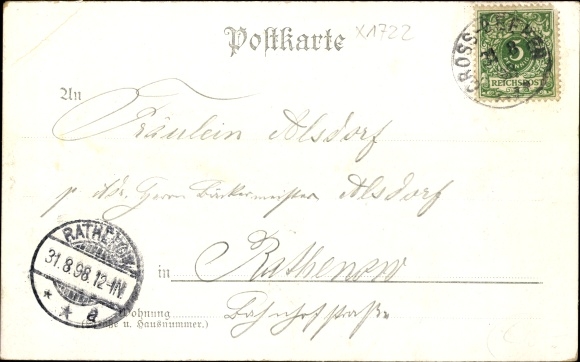 Postkarte
X1722
5
PFENNIG
REICHSPOST
An
Fräulein Alsdorf
Herrn Bäckermeister Alsdorf
RATHENOW
31.8.98.12-1N.
* * a
in Rathenow
Wohnung
(Straße u. Hausnummer.)
Bahnhofstraße